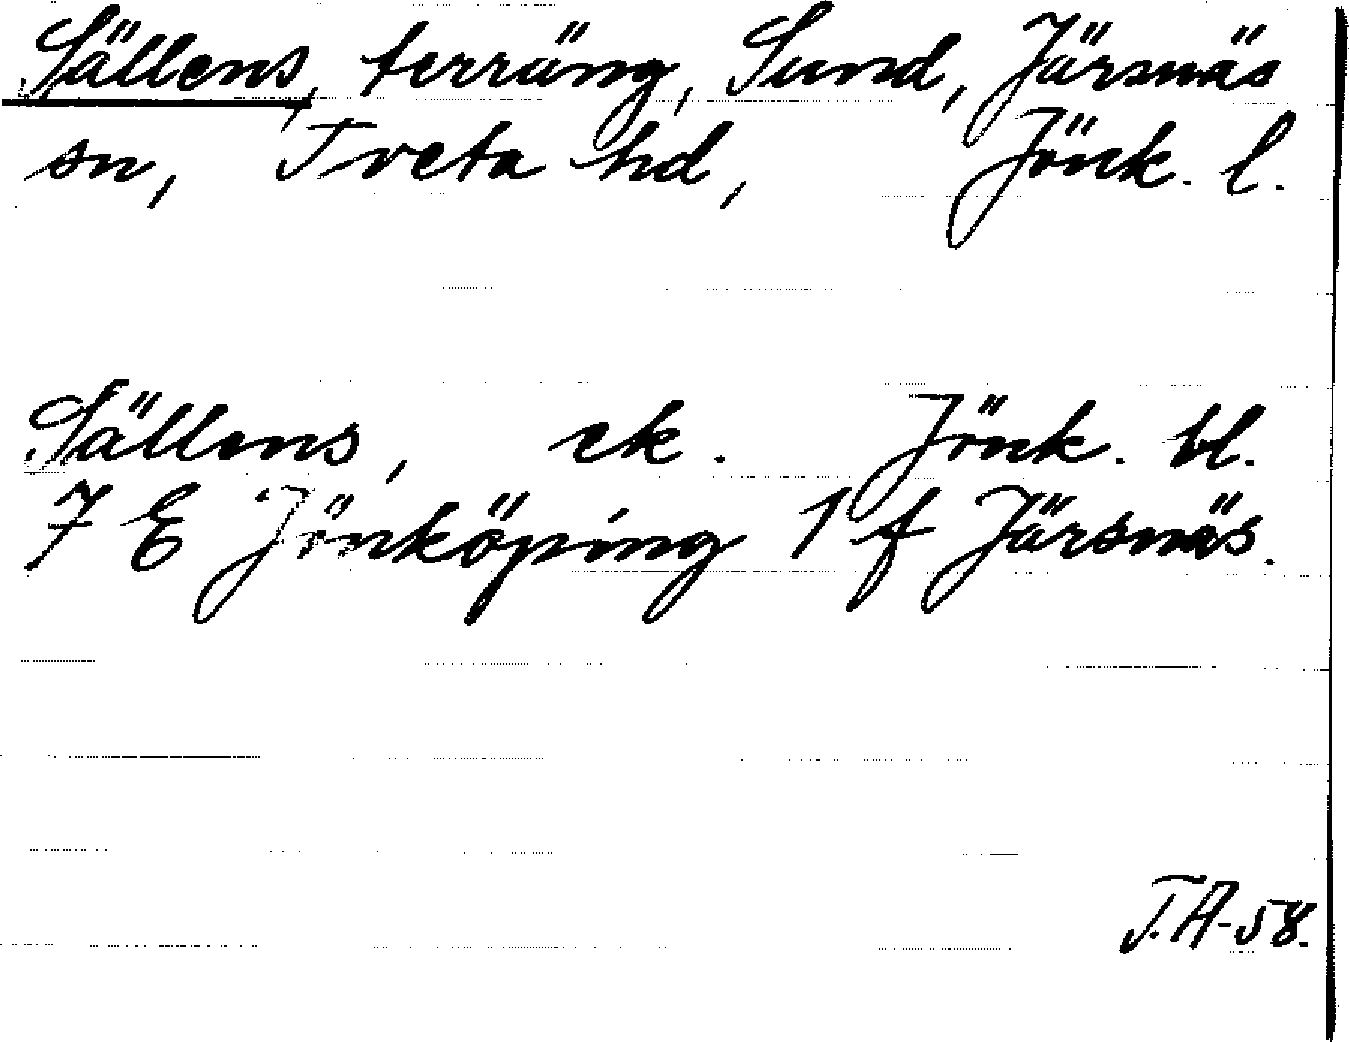 Sällens, terräng, Sund, Järsnäs
sn, Tveta hd, Jönk. l.
Sällens, ek. Jönk. bl.
7 E Jönköping 1 f Järsnäs.
T.A-58.